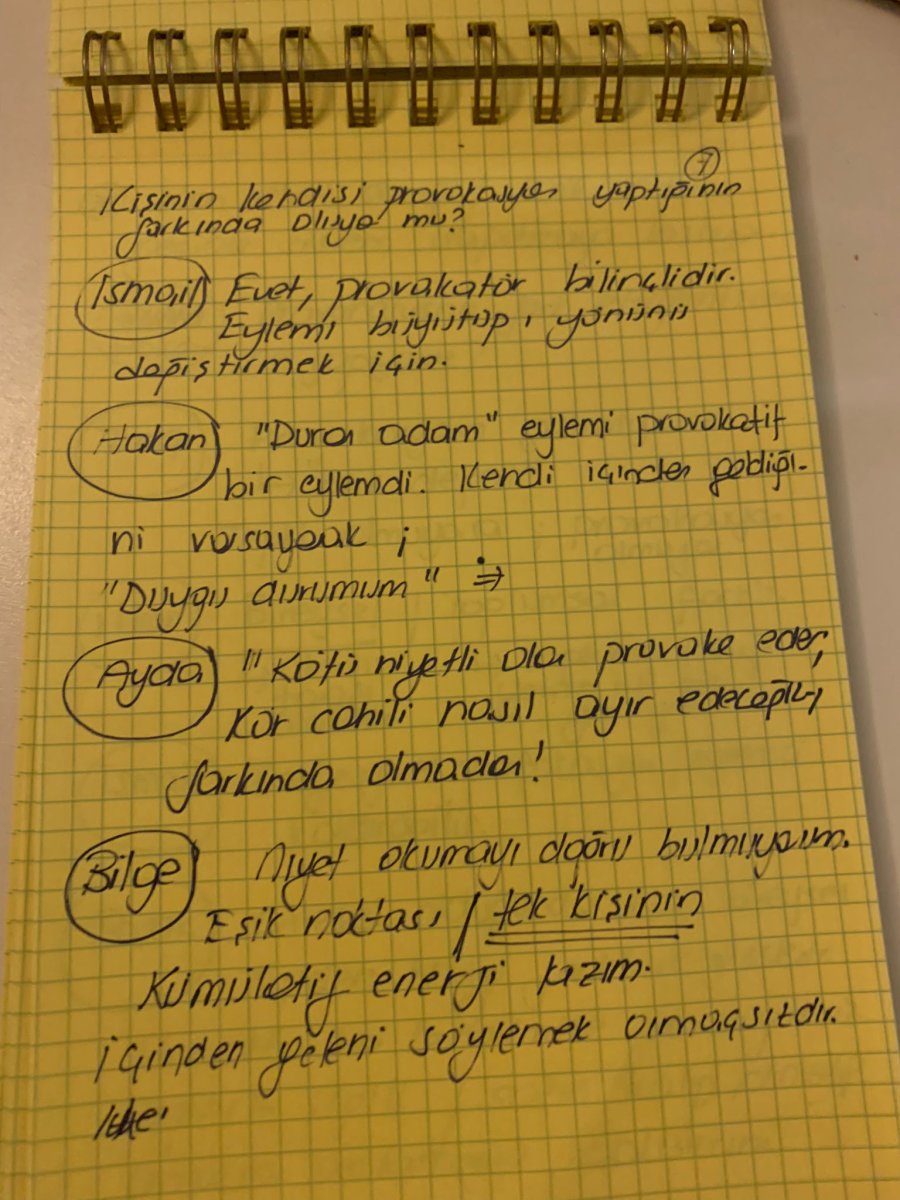 7
Kişinin kendisi provokasyon yaptığının
farkında oluyo mu?
İsmail Evet, provakatör bilinçlidir.
Eylemi büyütüp, yönünü
değiştirmek için.
Hakan "Duran adam" eylemi provokatif
bir eylemdi. Kendi içinden geldiği-
ni varsayarak ;
"Duygu durumum" ⇒
Ayda "Kötü niyetli olan provoke eder,
kör cahili nasıl ayır edeceğiz,
farkında olmadan!
Bilge Niyet okumayı doğru bulmuyorum.
Eşik noktası / tek kişinin
Kümülatif enerji lazım.
içinden geleni söylemek